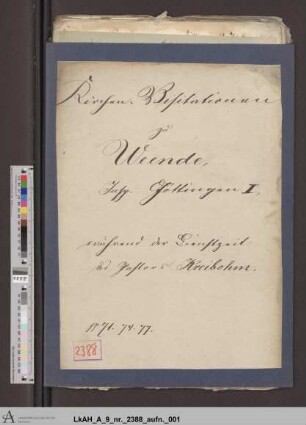 Kirchen-Visitationen
zu
Weende,
Insp. Göttingen I,
während der Dienstzeit
des Pastors Kreibohm.
1771. 74. 77.
2388
LkAH_A_9_nr._2388_aufn._001